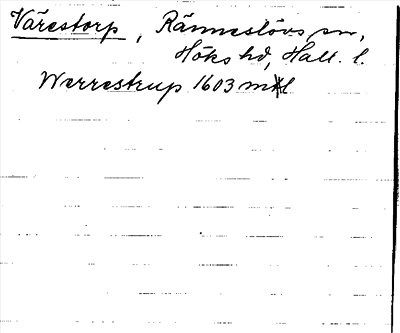 Vårestorp, Ränneslövs sn,
Höks hd, Hall. l.
Werrestrup 1603 mtl